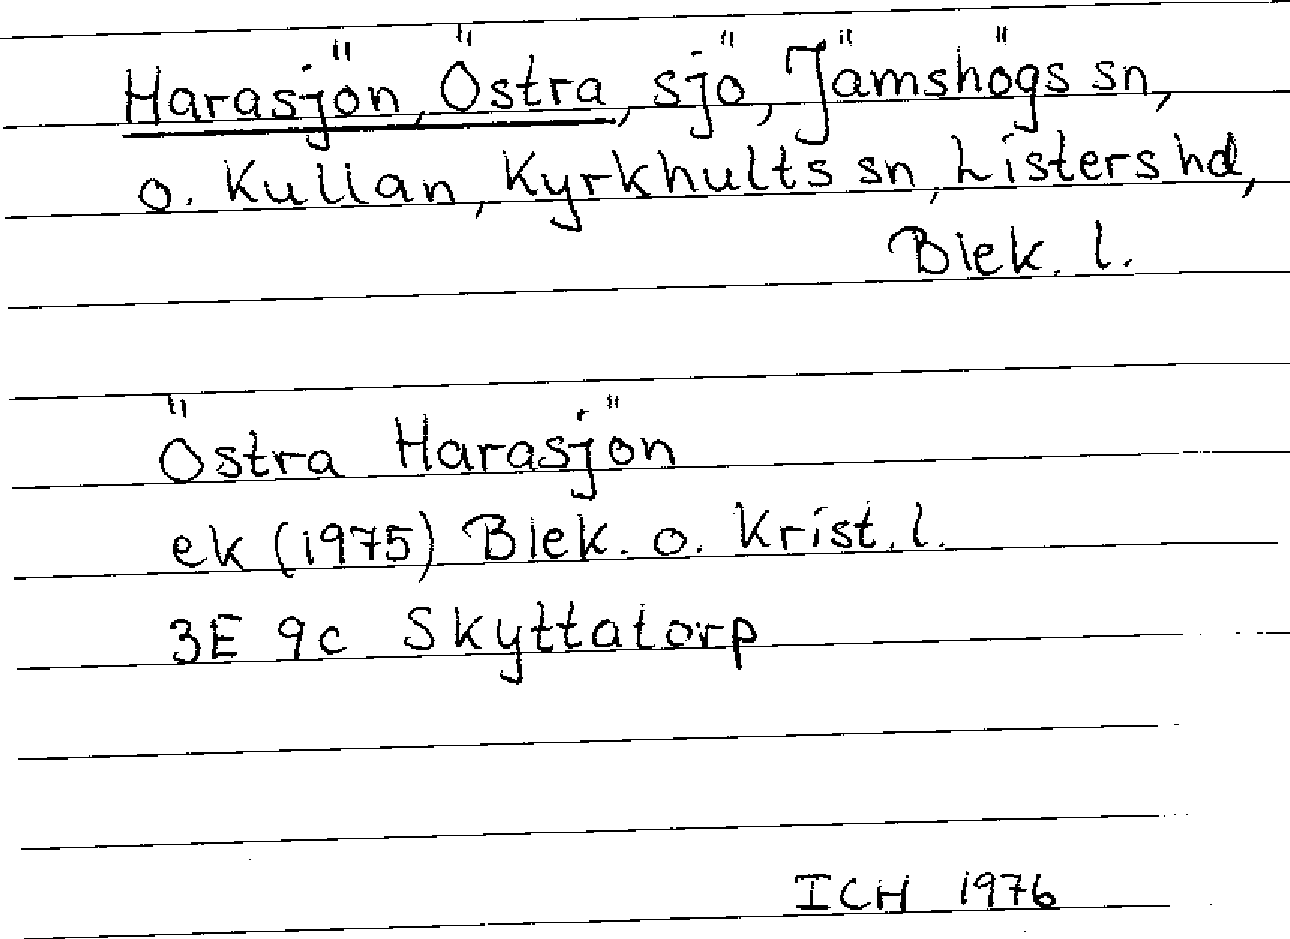 Harasjön, Östra, sjö, Jämshögs sn,
o. Kullan, Kyrkhults sn, Listers hd,
Blek. l.
Östra Harasjön
ek (1975) Blek. o. Krist. l.
3E 9c Skyttatorp
ICH 1976